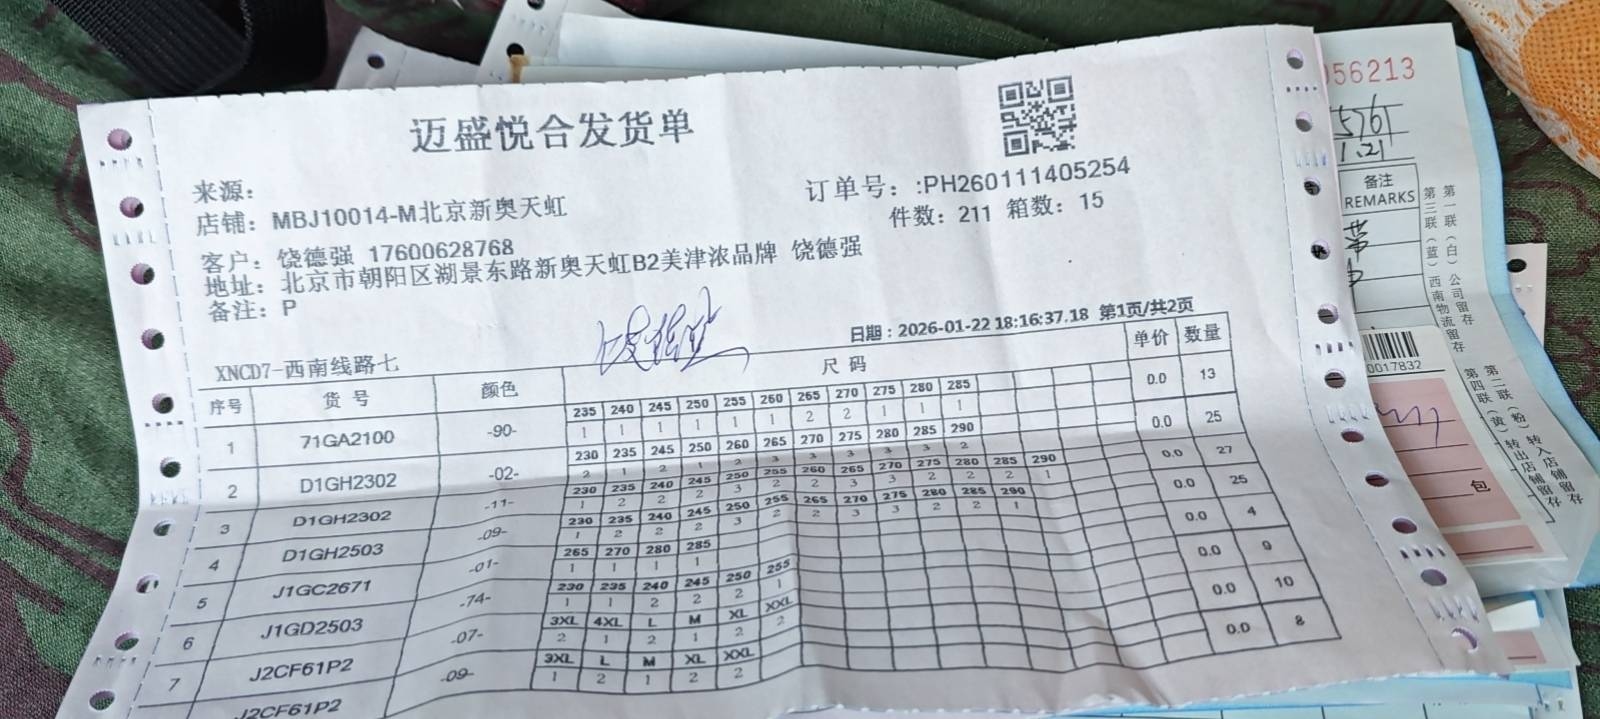 迈盛悦合发货单
来源：
店铺：MBJ10014-M北京新奥天虹
订单号：:PH260111405254
件数：211 箱数：15
客户：饶德强 17600628768
地址：北京市朝阳区湖景东路新奥天虹B2美津浓品牌 饶德强
备注：P
日期：2026-01-22 18:16:37.18 第1页/共2页
XNCD7-西南线路七
序号 货号 颜色 尺码 单价 数量
235 240 245 250 255 260 265 270 275 280 285
1 71GA2100 -90- 1 1 1 1 1 1 2 2 1 1 1 0.0 13
230 235 245 250 260 265 270 275 280 285 290
2 D1GH2302 -02- 2 1 2 1 3 3 3 3 3 2 0.0 25
230 235 240 245 250 255 260 265 270 275 280 285 290
3 D1GH2302 -11- 1 2 2 2 3 2 2 3 3 2 2 2 1 0.0 27
230 235 240 245 250 255 265 270 275 280 285 290
4 D1GH2503 -09- 1 2 2 2 3 2 2 3 3 2 2 1 0.0 25
265 270 280 285
5 J1GC2671 -01- 1 1 1 1 0.0 4
230 235 240 245 250 255
6 J1GD2503 -74- 1 1 2 2 2 1 0.0 9
3XL 4XL L M XL XXL
7 J2CF61P2 -07- 2 1 2 1 2 2 0.0 10
3XL L M XL XXL
J2CF61P2 -09- 1 2 1 2 2 0.0 8
056213
5761
1.21
备注
REMARKS
第一联（白）公司留存
第三联（蓝）西南物流留存
0017832
第二联（粉）转入店铺留存
第四联（黄）转出店铺留存
包